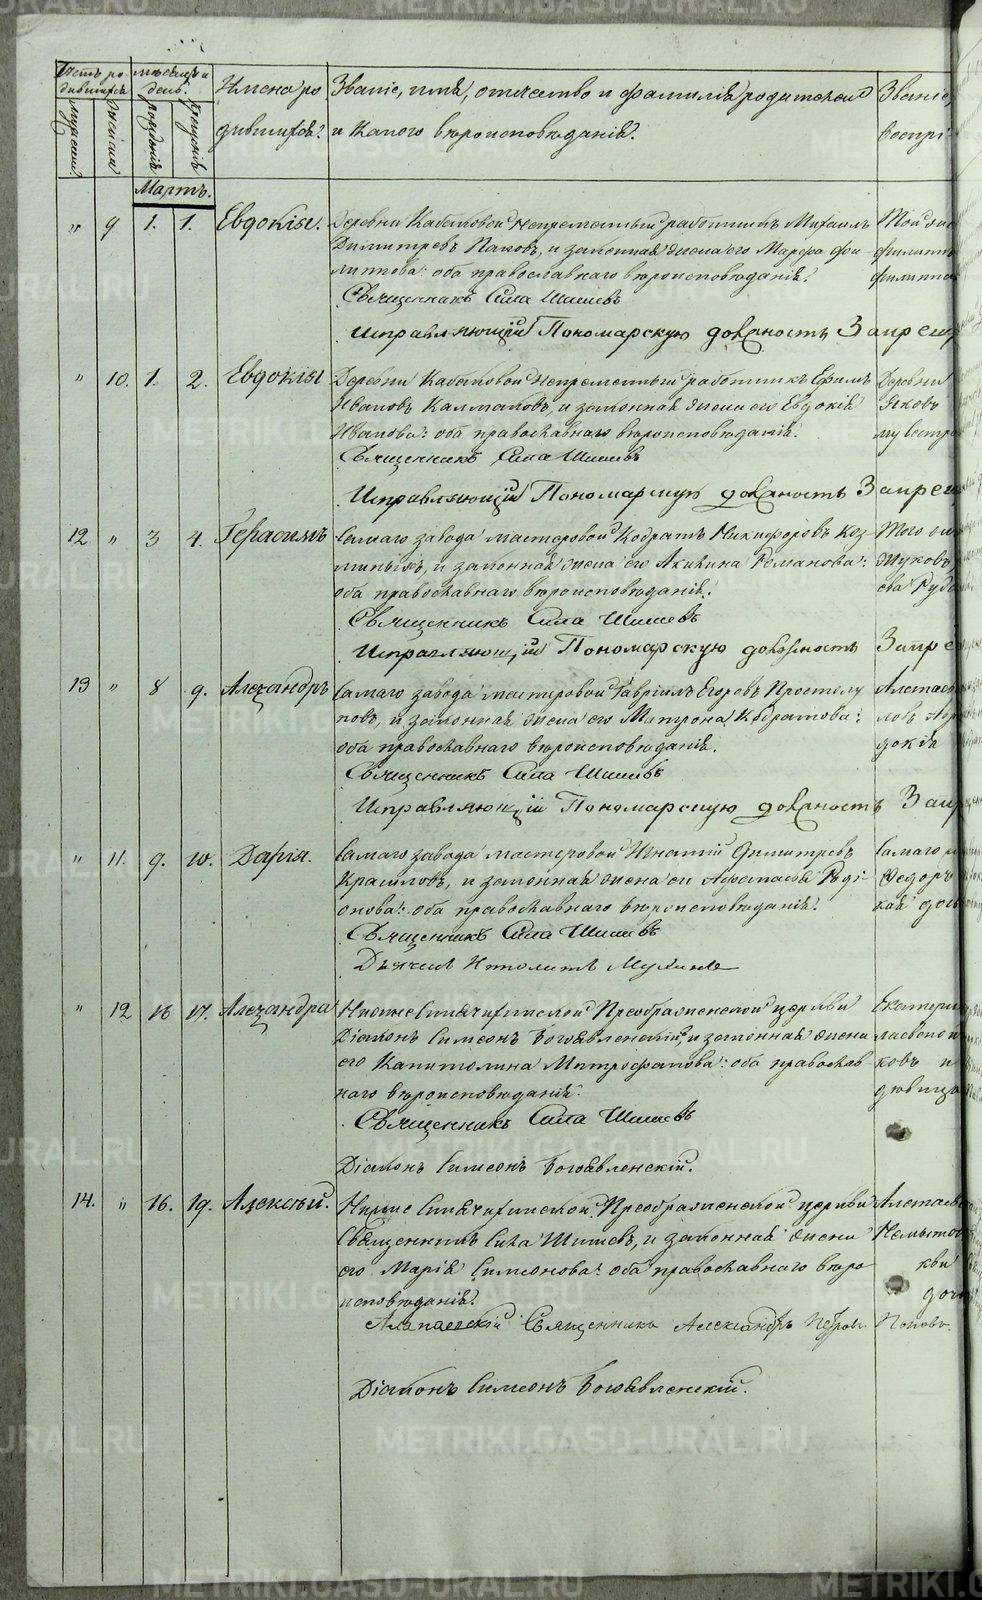 Счетъ родившихся
мѣсяцъ и день.
Имена родившихся.
Званіе, имя, отчество и фамилія родителей
и какого вѣроисповѣданія.
Званіе,
воспрі
мужеска
женска
рожденія
крещенія
Мартъ.
" 9 1. 1. Евдокія. Деревни Кабаковой непремѣнный работникъ Михаилъ
Димитревъ Паковъ, и законная жена его Марѳа Фи
липова: оба православнаго вѣроисповѣданія.
Священникъ Сила Шишевъ
Исправляющій Пономарскую должность Запрещ
" 10. 1. 2. Евдокія Деревни Кабаковой непремѣнный работникъ Ефимъ Деревни
Ивановъ Калмаковъ, и законная жена его Евдокія Яковъ
Иванова: оба православнаго вѣроисповѣданія.
Священникъ Сила Шишевъ
Исправляющій Пономарскую должность Запрещ
12 " 3 4. Герасимъ Самаго завода мастеровой Кодратъ Никифоровъ Коз- Того
миныхъ, и законная жена его Акилина Романова: Жуковъ
оба православнаго вѣроисповѣданія.
Священникъ Сила Шишевъ
Исправляющій Пономарскую должность Запре
13 " 8 9. Александръ Самаго завода мастеровой Гавріилъ Егоровъ Простолу
повъ, и законная жена его Матрона Кодратова:
оба православнаго вѣроисповѣданія. докія
Священникъ Сила Шишевъ
Исправляющій Пономарскую должность Запр
" 11. 9. 10. Дарія. Самаго завода мастеровой Игнатій Димитревъ Самаго
Крашповъ, и законная жена его Афанасья Роді Ѳедоръ
онова: оба православнаго вѣроисповѣданія.
Священникъ Сила Шишевъ
Дьячекъ Ипполитъ Мухинъ
" 12 16 17. Александра Нижне Синячихинской Преображенской церкви Екатерин
Діаконъ Симеонъ Богоявленскій, и законная жена
его Капитолина Митрофанова: оба православ ковъ и
наго вѣроисповѣданія. дѣвица
Священникъ Сила Шишевъ
Діаконъ Симеонъ Богоявленскій.
14. " 16. 19. Алексѣй. Нижне Синячихинской Преображенской церкви Алапаев
Священникъ Сила Шишевъ, и законная жена
его Марія Симеонова: оба православнаго вѣро
исповѣданія.
Алапаевскій Священникъ Александръ Петровъ Поповъ.
Діаконъ Симеонъ Богоявленскій.
METRIKI.GASO-URAL.RU